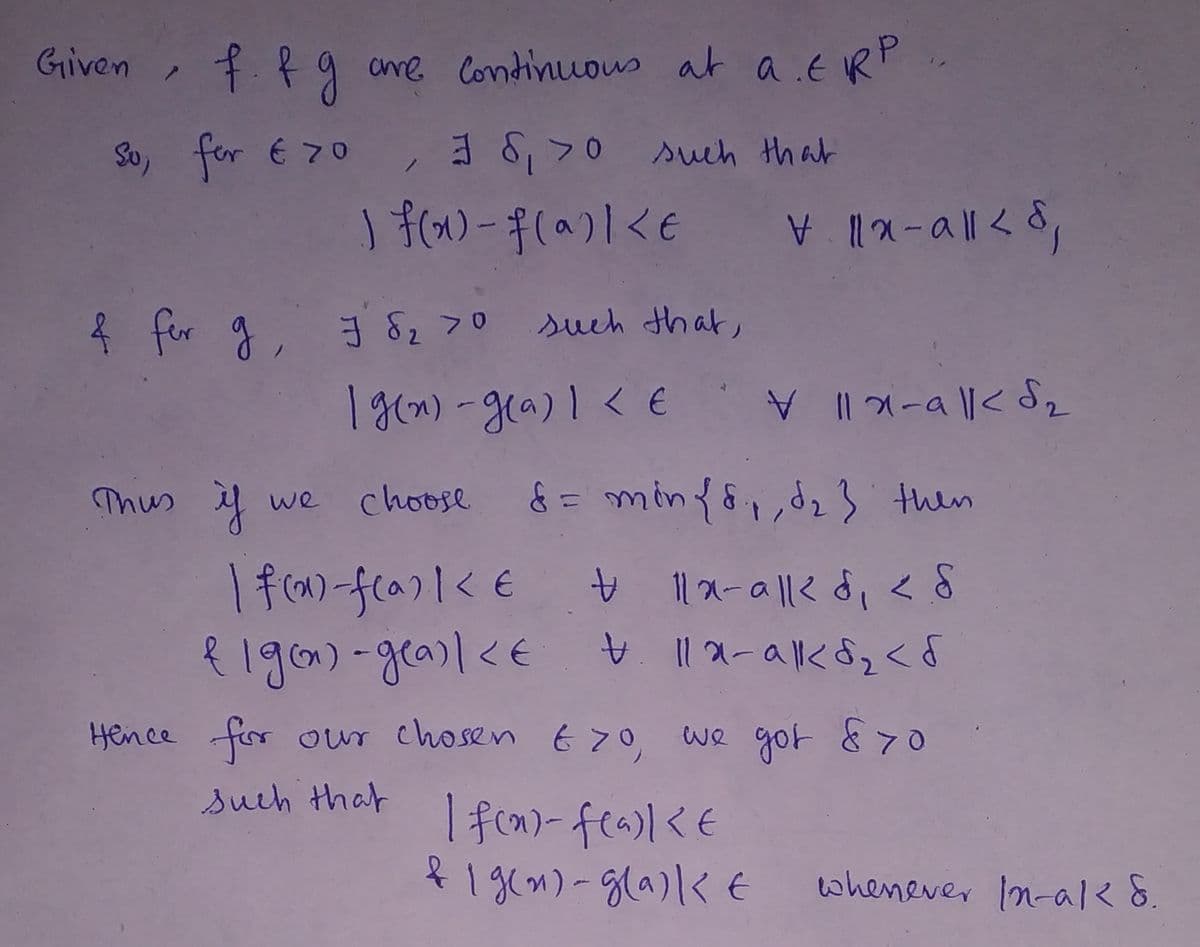 Given , f & g are Continuous at a ∈ ℝᴾ
So, for ϵ > 0 , ∃ δ₁ > 0 such that
| f(x) - f(a) | < ϵ ∀ ||x - a|| < δ₁
& for g, ∃ δ₂ > 0 such that,
| g(x) - g(a) | < ϵ ∀ ||x - a|| < δ₂
Thus if we choose δ = min{δ₁, δ₂} then
| f(x) - f(a) | < ϵ ∀ ||x - a|| < δ₁ < δ
& | g(x) - g(a) | < ϵ ∀ ||x - a|| < δ₂ < δ
Hence for our chosen ϵ > 0, we got δ > 0
such that | f(x) - f(a) | < ϵ
& | g(x) - g(a) | < ϵ whenever |x - a| < δ.